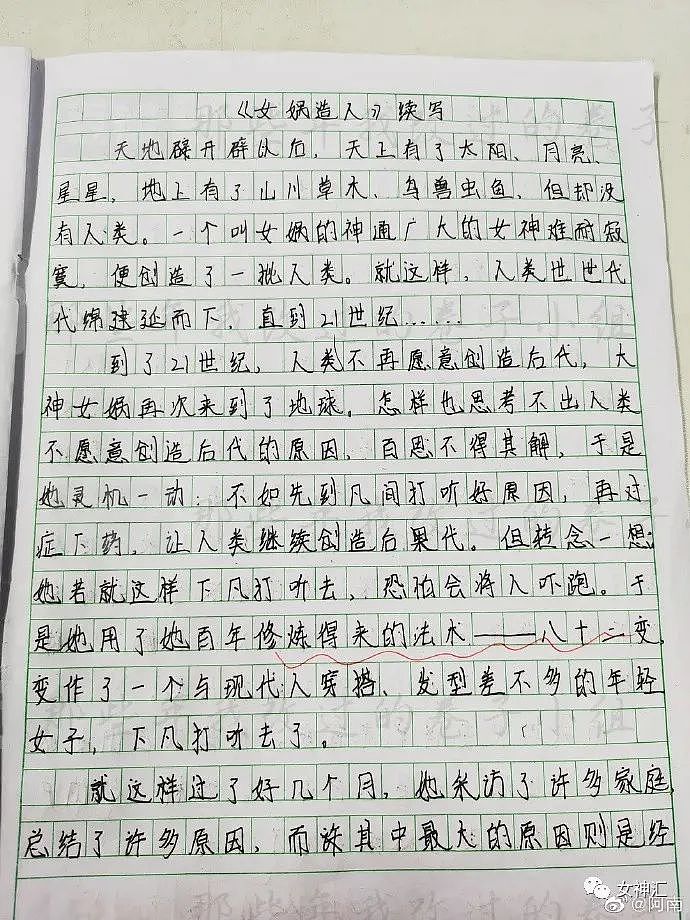 《女娲造人》续写
天地辟开辟以后，天上有了太阳、月亮、
星星，地上有了山川草木、鸟兽虫鱼，但却没
有人类。一个叫女娲的神通广大的女神难耐寂
寞，便创造了一批人类。就这样，人类世世代
代绵建延而下，直到21世纪……
到了21世纪，人类不再愿意创造后代，大
神女娲再次来到了地球。怎样也思考不出人类
不愿意创造后代的原因，百思不得其解，于是
她灵机一动：不如先到凡间打听好原因，再对
症下药，让人类继续创造后果代。但转念一想：
她若就这样下凡打听去，恐怕会将人吓跑。于
是她用了她百年修炼得来的法术——八十二变，
变作了一个与现代人穿搭、发型差不多的年轻
女子，下凡打听去了。
就这样过了好几个月，她采访了许多家庭，
总结了许多原因，而诛其中最大的原因则是经
女神汇
@阿南